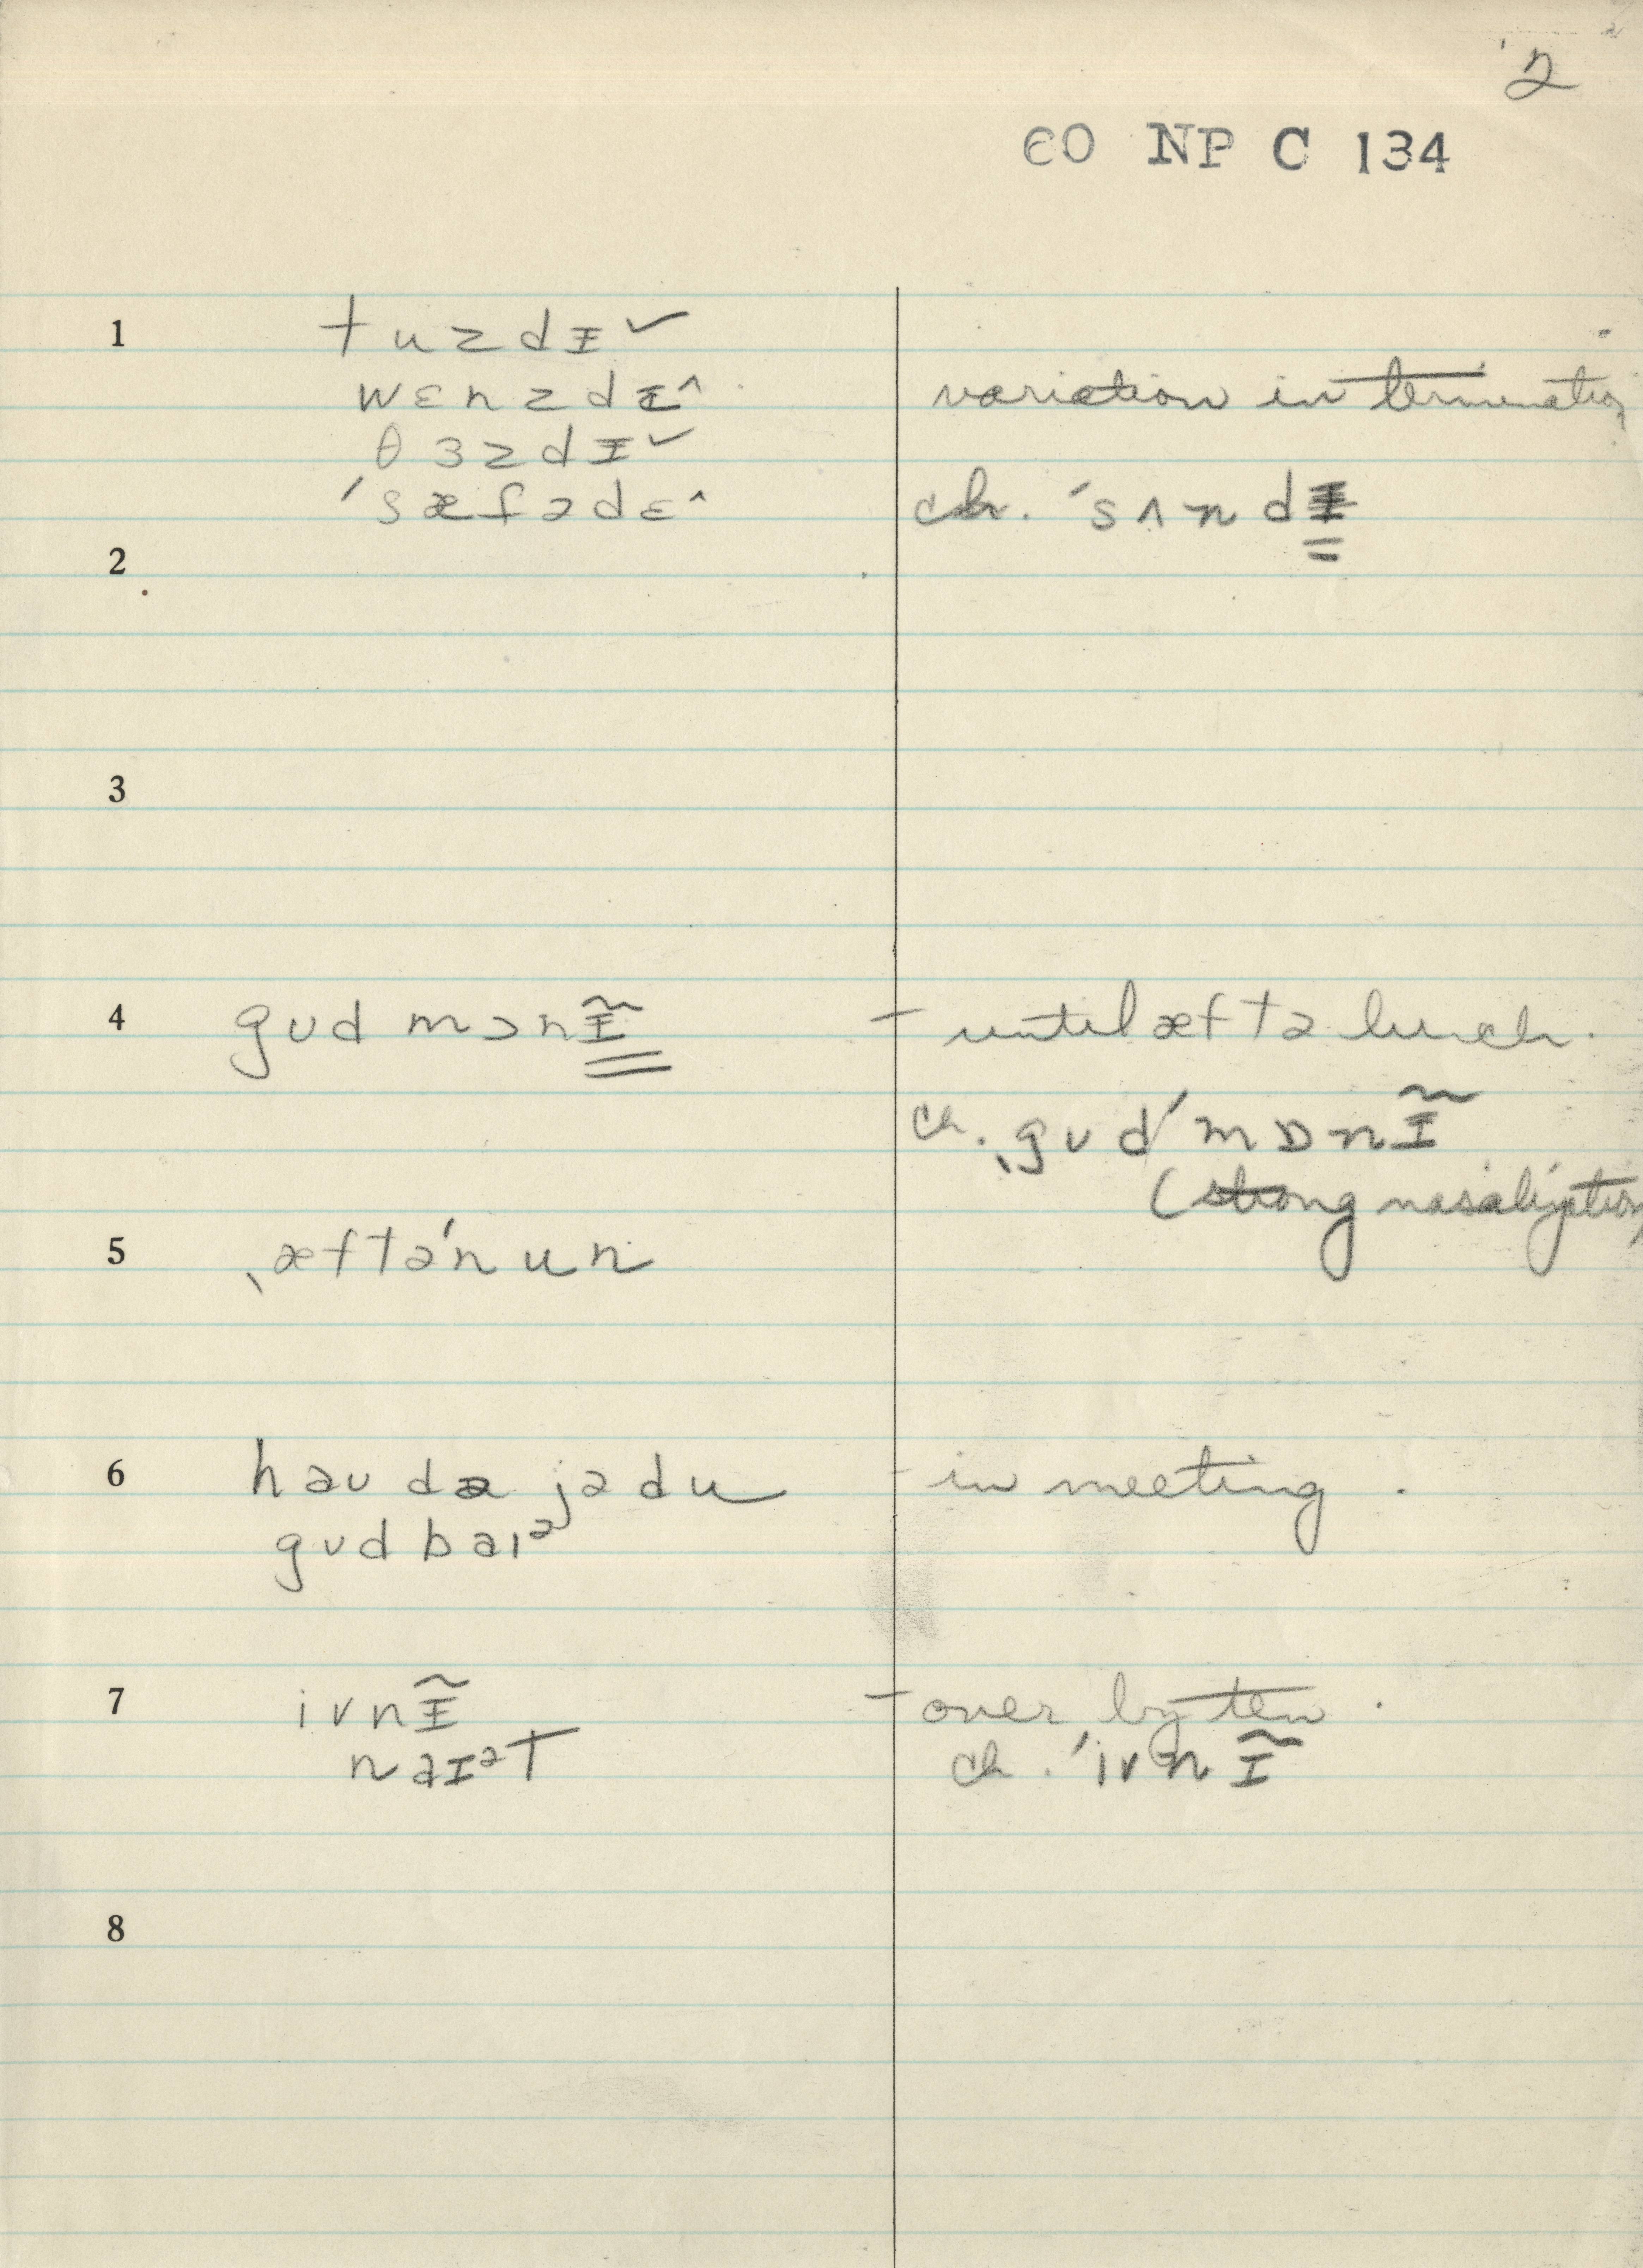 2
60 NP C 134
1 tuzdɪˇ
wɛnzdɪ^ variation in termination
θɜzdɪˇ
ˈsæfədɛ^ ch. ˈsʌndɪ
2
3
4 gud mɔnɪ̃ – until æftə lunch.
ch. ˌgud ˈmɒnɪ̃
(strong nasalization)
5 ˌæftəˈnun
6 haudə jədu – in meeting.
gudbaɪᵊ
7 ivnɪ̃ – over by ten.
naɪᵊt ch. ˈivnɪ̃
8